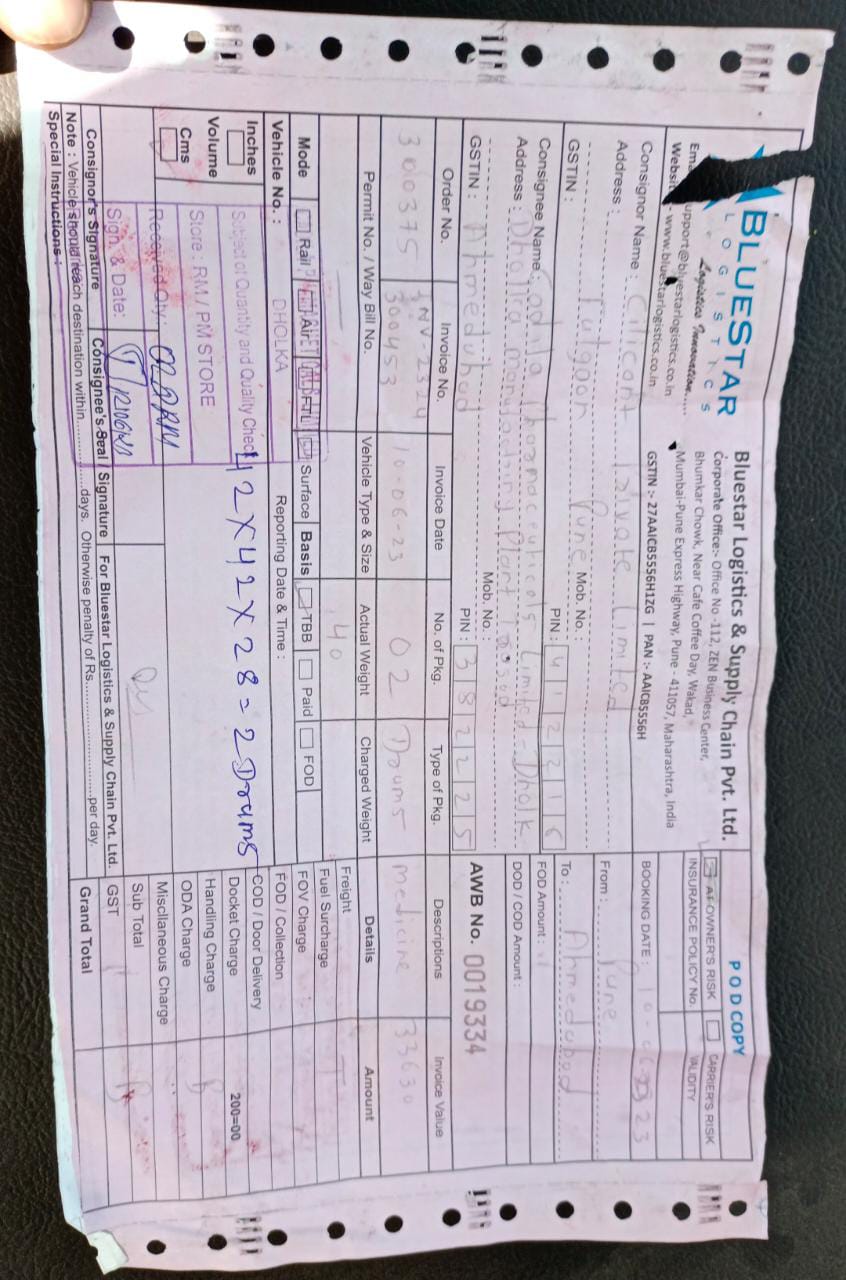 BLUESTAR
LOGISTICS
Logistics Innovation.....
upport@bluestarlogistics.co.in
Websit :- www.bluestarlogistics.co.in
Bluestar Logistics & Supply Chain Pvt. Ltd.
Corporate Office:- Office No -112, ZEN Business Center,
Bhumkar Chowk, Near Cafe Coffee Day, Wakad,
Mumbai-Pune Express Highway, Pune - 411057, Maharashtra, India
GSTIN :- 27AAICB5556H1ZG | PAN :- AAICB5556H
POD COPY
AT OWNER'S RISK CARRIER'S RISK
INSURANCE POLICY No. VALIDITY
BOOKING DATE : 23
From : Pune
To : Ahmedabad
FOD Amount :
DOD / COD Amount :
AWB No. 0019334
Consignor Name : Cilicant Private Limited
Address :
Fulgoon Pune Mob. No. :
GSTIN : PIN : 412216
Consignee Name : Cadila Pharmaceuticals Limited - Dholk
Address : Dholka Manufacturing Plant
Mob. No. :
GSTIN : Ahmedabad PIN : 382225
Order No. Invoice No. Invoice Date No. of Pkg. Type of Pkg. Descriptions Invoice Value
300375 INV-2324 300453 10-06-23 02 Drums medicine 33630
Permit No. / Way Bill No. Vehicle Type & Size Actual Weight Charged Weight Details Amount
40
Freight
Fuel Surcharge
FOV Charge
FOD / Collection
COD / Door Delivery
Docket Charge 200=00
Handling Charge
ODA Charge
Miscllaneous Charge
Sub Total
GST
Grand Total
Mode Rail Air FTL Surface Basis TBB Paid FOD
Vehicle No. : DHOLKA Reporting Date & Time :
Inches
Volume
Cms
42X42X28=2 Drums
Subject of Quantity and Quality Check
Store : RM / PM STORE
Received Qty.:
Sign. & Date:
Consignor's Signature Consignee's Seal / Signature For Bluestar Logistics & Supply Chain Pvt. Ltd.
Note : Vehicle should reach destination within.................days. Otherwise penalty of Rs.............................per day.
Special Instructions :